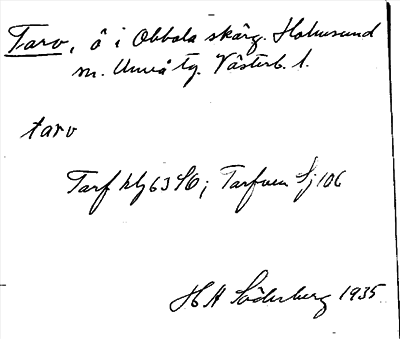 Tarv, ö i Obbola skärg. Holmsund
sn. Umeå tg. Västerb. l.
tarv
Tarf klj 63 SO; Tarfven Sj 106
H A Söderberg 1935